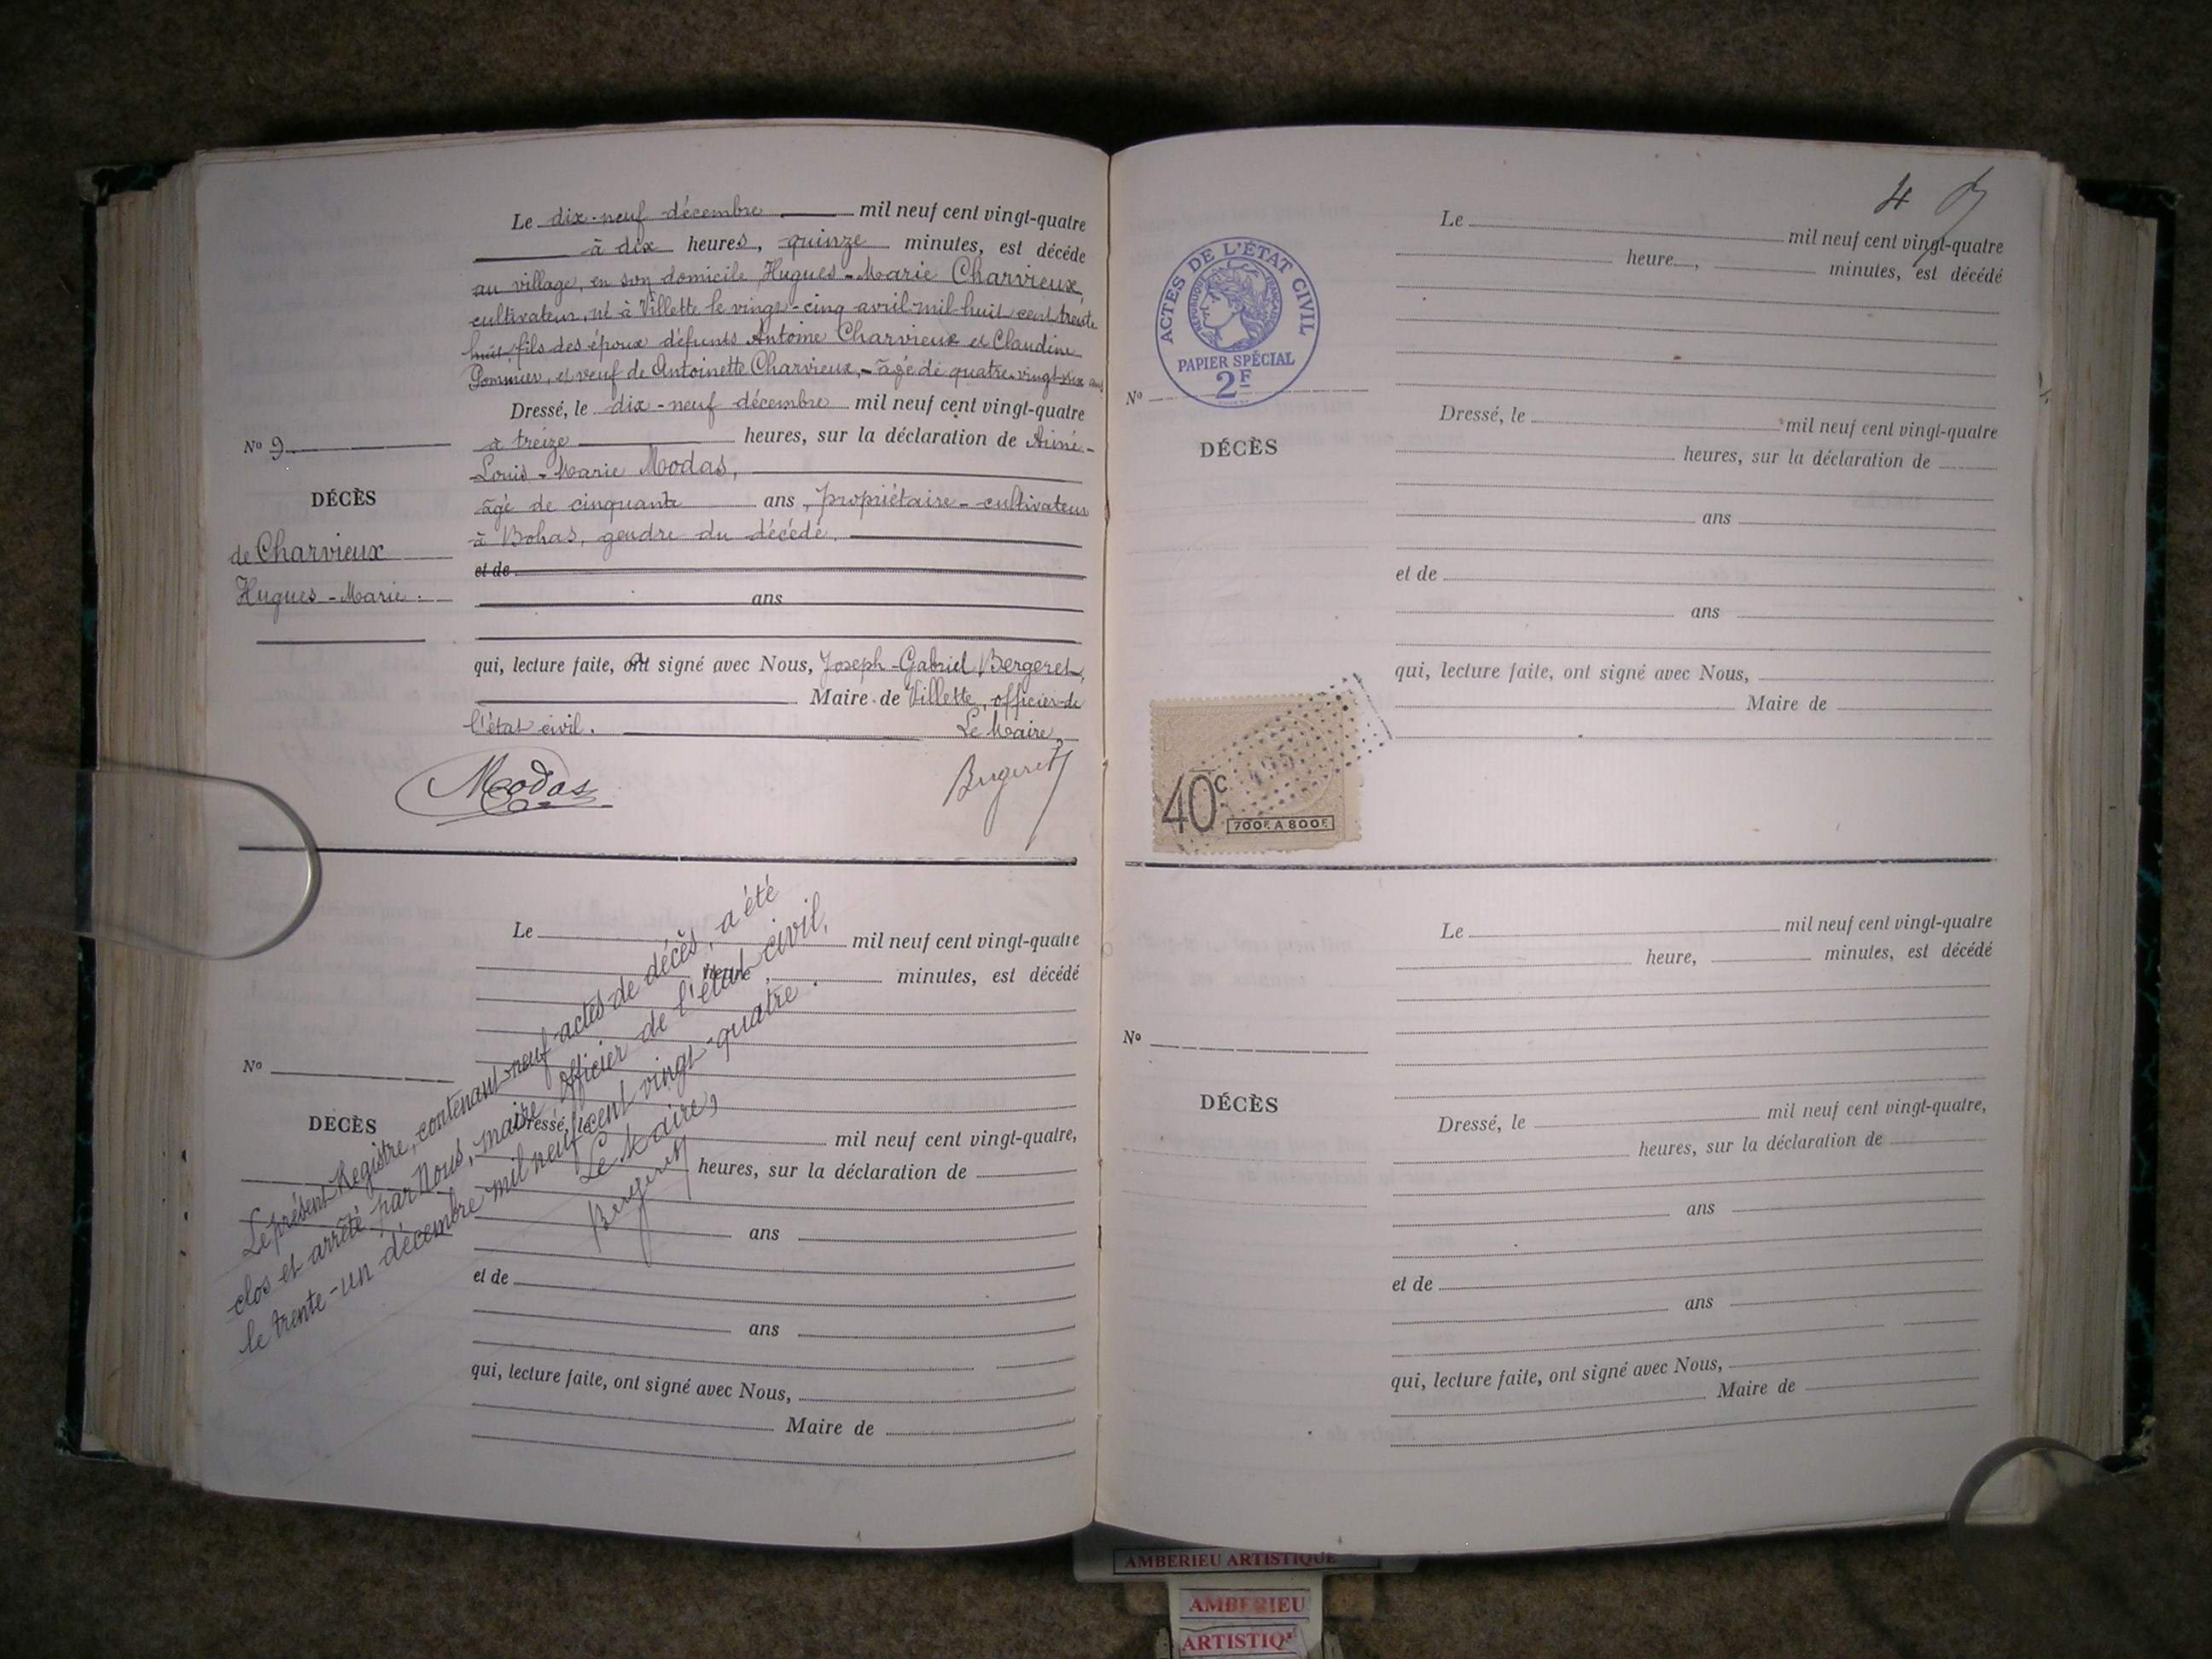 Le dix-neuf décembre mil neuf cent vingt-quatre
à dix heures, quinze minutes, est décédé
au village, en son domicile, Hugues-Marie Charvieux,
cultivateur, né à Villette le vingt-cinq avril mil huit cent trente
huit fils des époux défunts Antoine Charvieux et Claudine
Pommier, et veuf de Antoinette Charvieux, - âgé de quatre-vingt-six ans
Dressé, le dix-neuf décembre mil neuf cent vingt-quatre
à treize heures, sur la déclaration de Aimé-
Louis-Marie Modas,
âgé de cinquante ans, propriétaire-cultivateur
à Bohas, gendre du décédé.
et de
ans
qui, lecture faite, ont signé avec Nous, Joseph-Gabriel Bergeret,
Maire de Villette, officier de
l'état civil. Le Maire,
Modas Bergeret
No 9
DÉCÈS
de Charvieux
Hugues-Marie.
Le mil neuf cent vingt-quatre
heure , minutes, est décédé
No
DÉCÈS
Dressé, le mil neuf cent vingt-quatre,
heures, sur la déclaration de
ans
et de
ans
qui, lecture faite, ont signé avec Nous,
Maire de
Le présent Registre, contenant neuf actes de décès, a été
clos et arrêté par Nous, maire officier de l'état civil,
le trente-un décembre mil neuf cent vingt-quatre.
Le Maire,
Bergeret
4
Le mil neuf cent vingt-quatre
heure , minutes, est décédé
ACTES DE L'ÉTAT CIVIL
RÉPUBLIQUE FRANÇAISE
PAPIER SPÉCIAL
2F
No
DÉCÈS
Dressé, le mil neuf cent vingt-quatre
heures, sur la déclaration de
ans
et de
ans
qui, lecture faite, ont signé avec Nous,
Maire de
40c
700F. A 800F.
Le mil neuf cent vingt-quatre
heure, minutes, est décédé
No
DÉCÈS
Dressé, le mil neuf cent vingt-quatre,
heures, sur la déclaration de
ans
et de
ans
qui, lecture faite, ont signé avec Nous,
Maire de
AMBERIEU ARTISTIQUE
AMBERIEU
ARTISTIQ